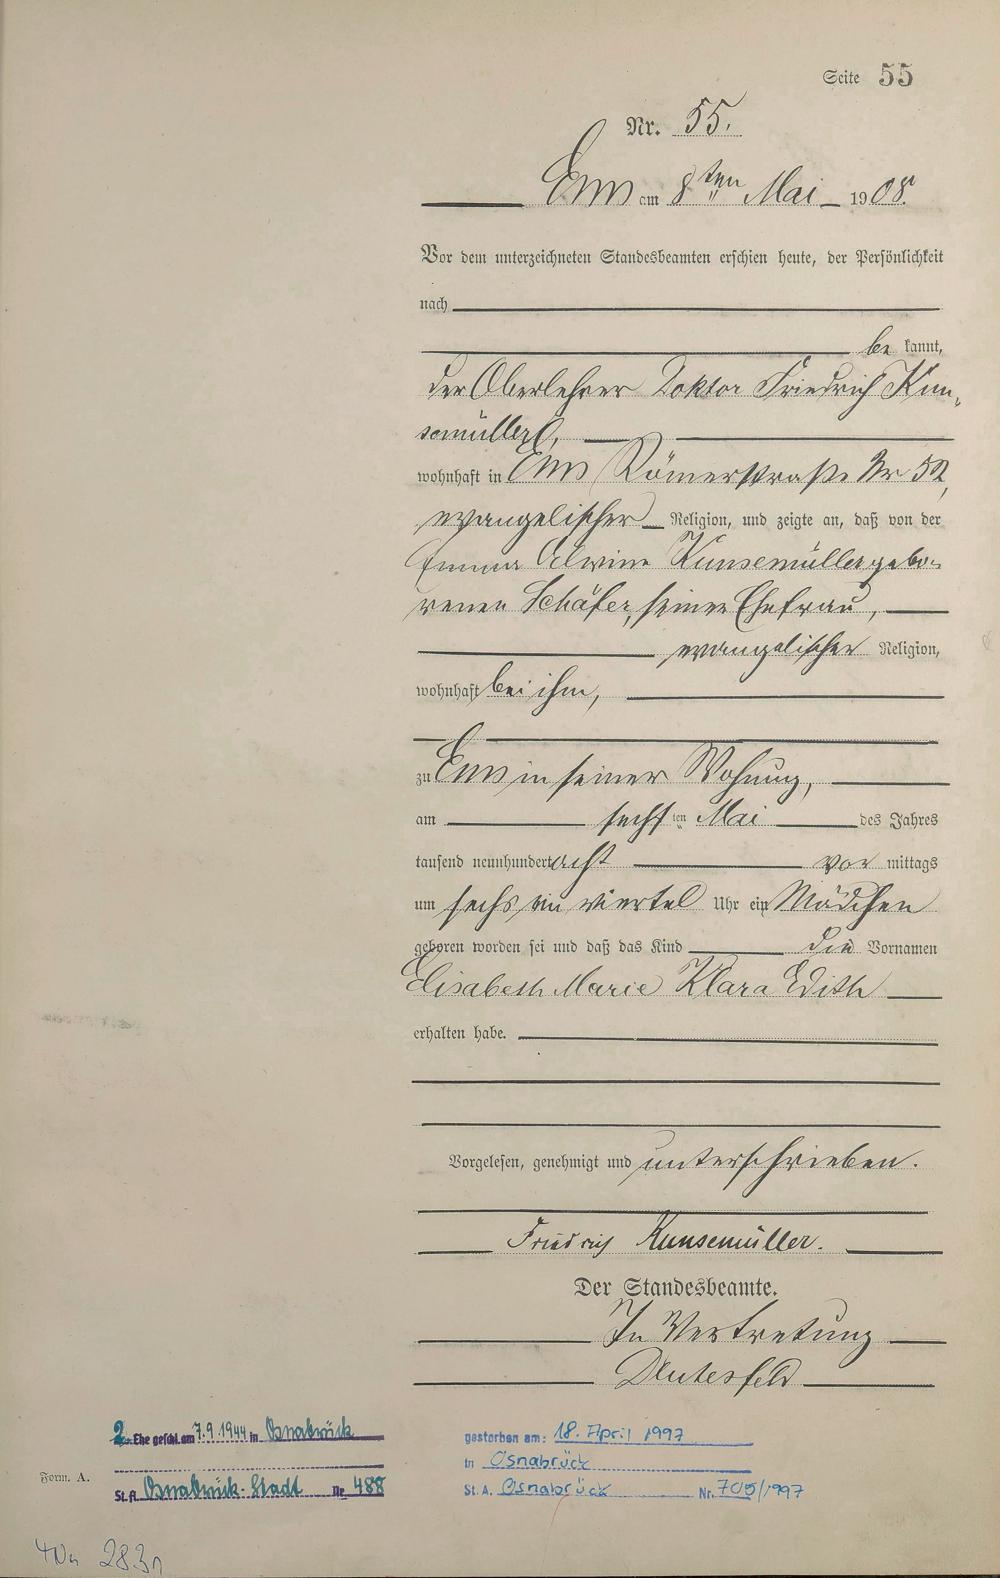 Seite 55
Nr. 55.
Ems am 8ten Mai 1908.
Vor dem unterzeichneten Standesbeamten erschien heute, der Persönlichkeit
nach
be kannt,
der Oberlehrer Doktor Friedrich Kun-
semüller,
wohnhaft in Ems Römerstraße Nr 52,
evangelischer Religion, und zeigte an, daß von der
Emma Kunsemüller gebo-
renen Schäfer, seiner Ehefrau,
evangelischer Religion,
wohnhaft bei ihm,
zu Ems in seiner Wohnung,
am sechsten Mai des Jahres
tausend neunhundert acht vor mittags
um sechs ein viertel Uhr ein Mädchen
geboren worden sei und daß das Kind die Vornamen
Elisabeth Marie Klara Edith
erhalten habe.
Vorgelesen, genehmigt und unterschrieben.
Friedrich Kunsemüller.
Der Standesbeamte.
In Vertretung
2. Ehe geschl. am 7.9.1944 in Osnabrück
St. A. Osnabrück-Stadt Nr. 488
gestorben am: 18. April 1997
in Osnabrück
St. A. Osnabrück Nr. 705/1997
Form. A.